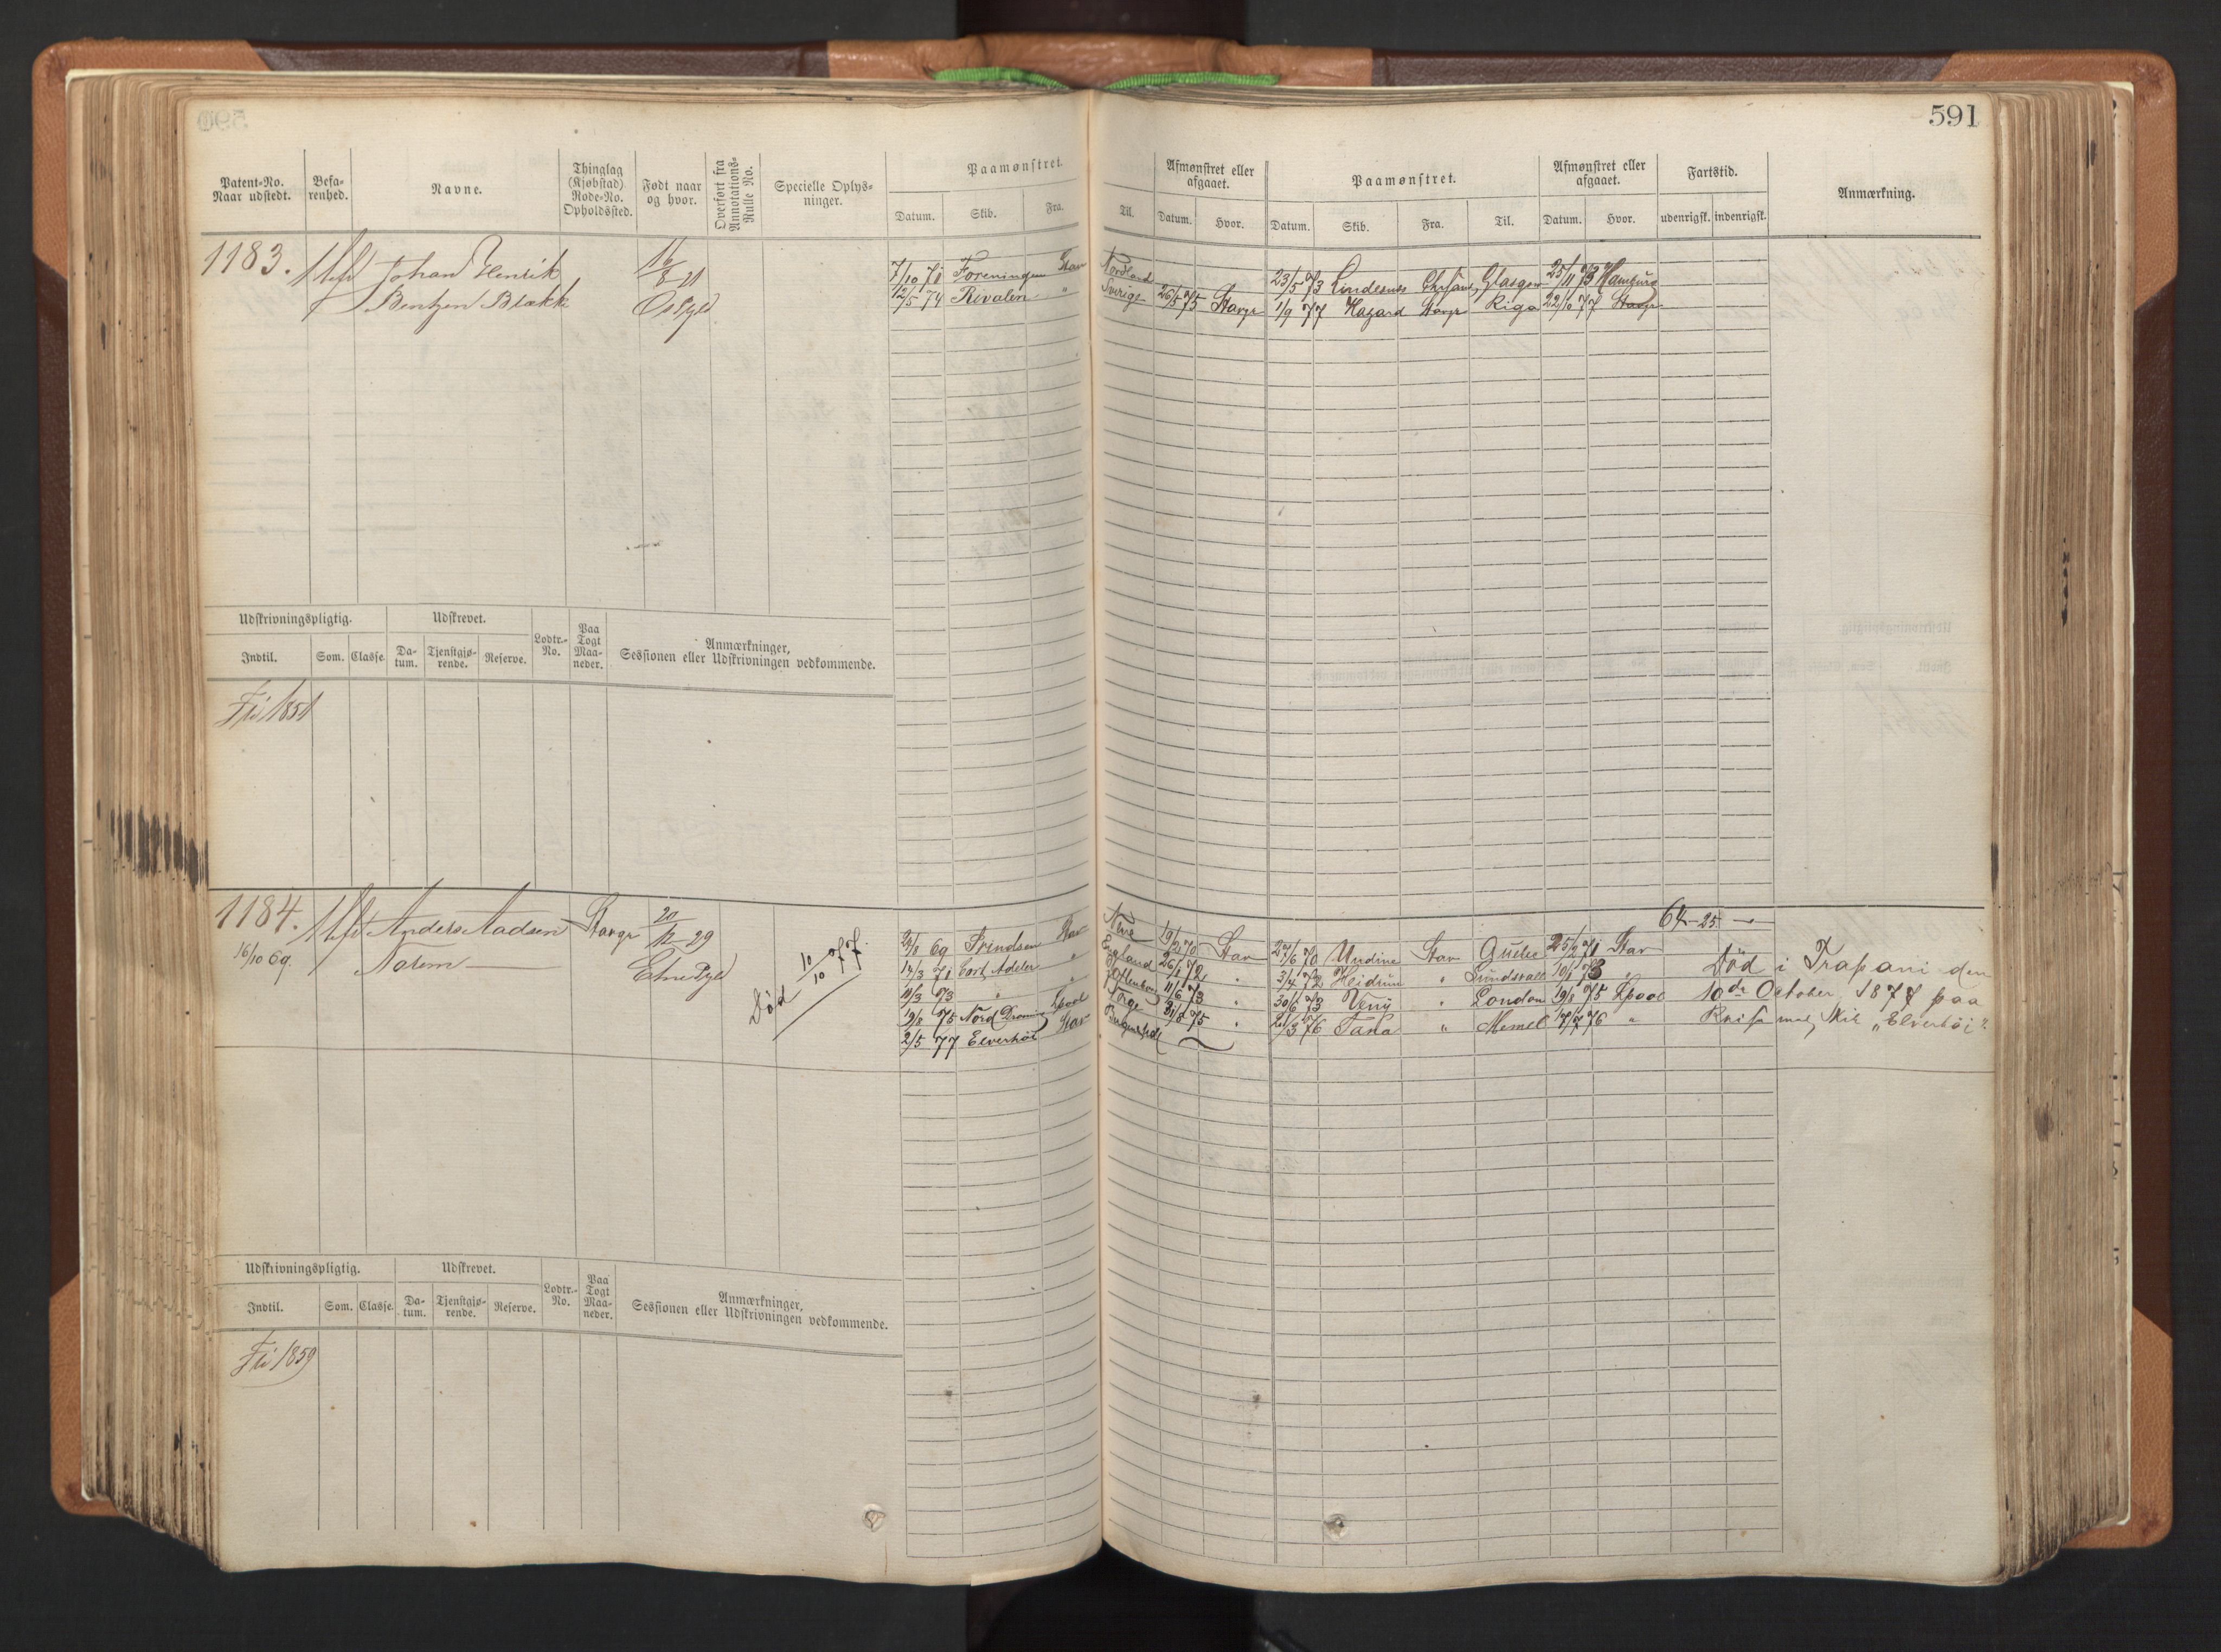 591
Patent-No. Naar udstedt.
Befarenhed.
Navne.
Thinglag (Kjøbstad) Rode-No. Opholdssted.
Født naar og hvor.
Overført fra Annotations-Rulle No.
Specielle Oplysninger.
Paamønstret.
Datum. Skib. Fra. Til.
Afmønstret eller afgaaet.
Datum. Hvor.
Paamønstret.
Datum. Skib. Fra. Til.
Afmønstret eller afgaaet.
Datum. Hvor.
Fartstid.
udenrigsk. indenrigsk.
Anmærkning.
1183. Johan Henrik 16/8 21
Bentzen Blakk
7/10 70 Foreningen Stav Nordland 23/5 73 Lindesnes Chrsand Glasgow 25/11 73 Hamburg
12/5 74 Rivalen " Sverige 26/5 75 Stavgr 1/9 77 Hazard Stavgr Riga 22/10 77 Stavgr
Udskrivningspligtig. Udskrevet. Lodtr.-No. Paa Togt Maaneder. Anmærkninger, Sessionen eller Udskrivningen vedkommende.
Indtil. Som. Classe. Datum. Tjenstgjørende. Reserve.
Fri 1851
1184. Anders Aadsen Stavgr 20/12 29
16/10 69. Norem Etne Pgld
Død 10/10 77.
64-25
Prindsen Stav 19/2 70 Stav 27/6 70 Undine Stav 25/2 71 Stav
14/3 71 Carl Adeler " England 26/1 72 " 3/4 72 Heidrun " Sundsvall 10/1 73 "
10/3 73 " " Gothenborg 11/6 73 " 30/6 73 " London 19/8 75 Lpool
19/8 75 Nord Lpool Norge 31/8 75 " 21/3 76 Tana " Memel 17/7 76 "
2/5 77 Elverhöi Stav
Død i Trapani den
10de October 1877 paa
Skib „Elverhöi".
Udskrivningspligtig. Udskrevet. Lodtr.-No. Paa Togt Maaneder. Anmærkninger, Sessionen eller Udskrivningen vedkommende.
Indtil. Som. Classe. Datum. Tjenstgjørende. Reserve.
Fri 1859